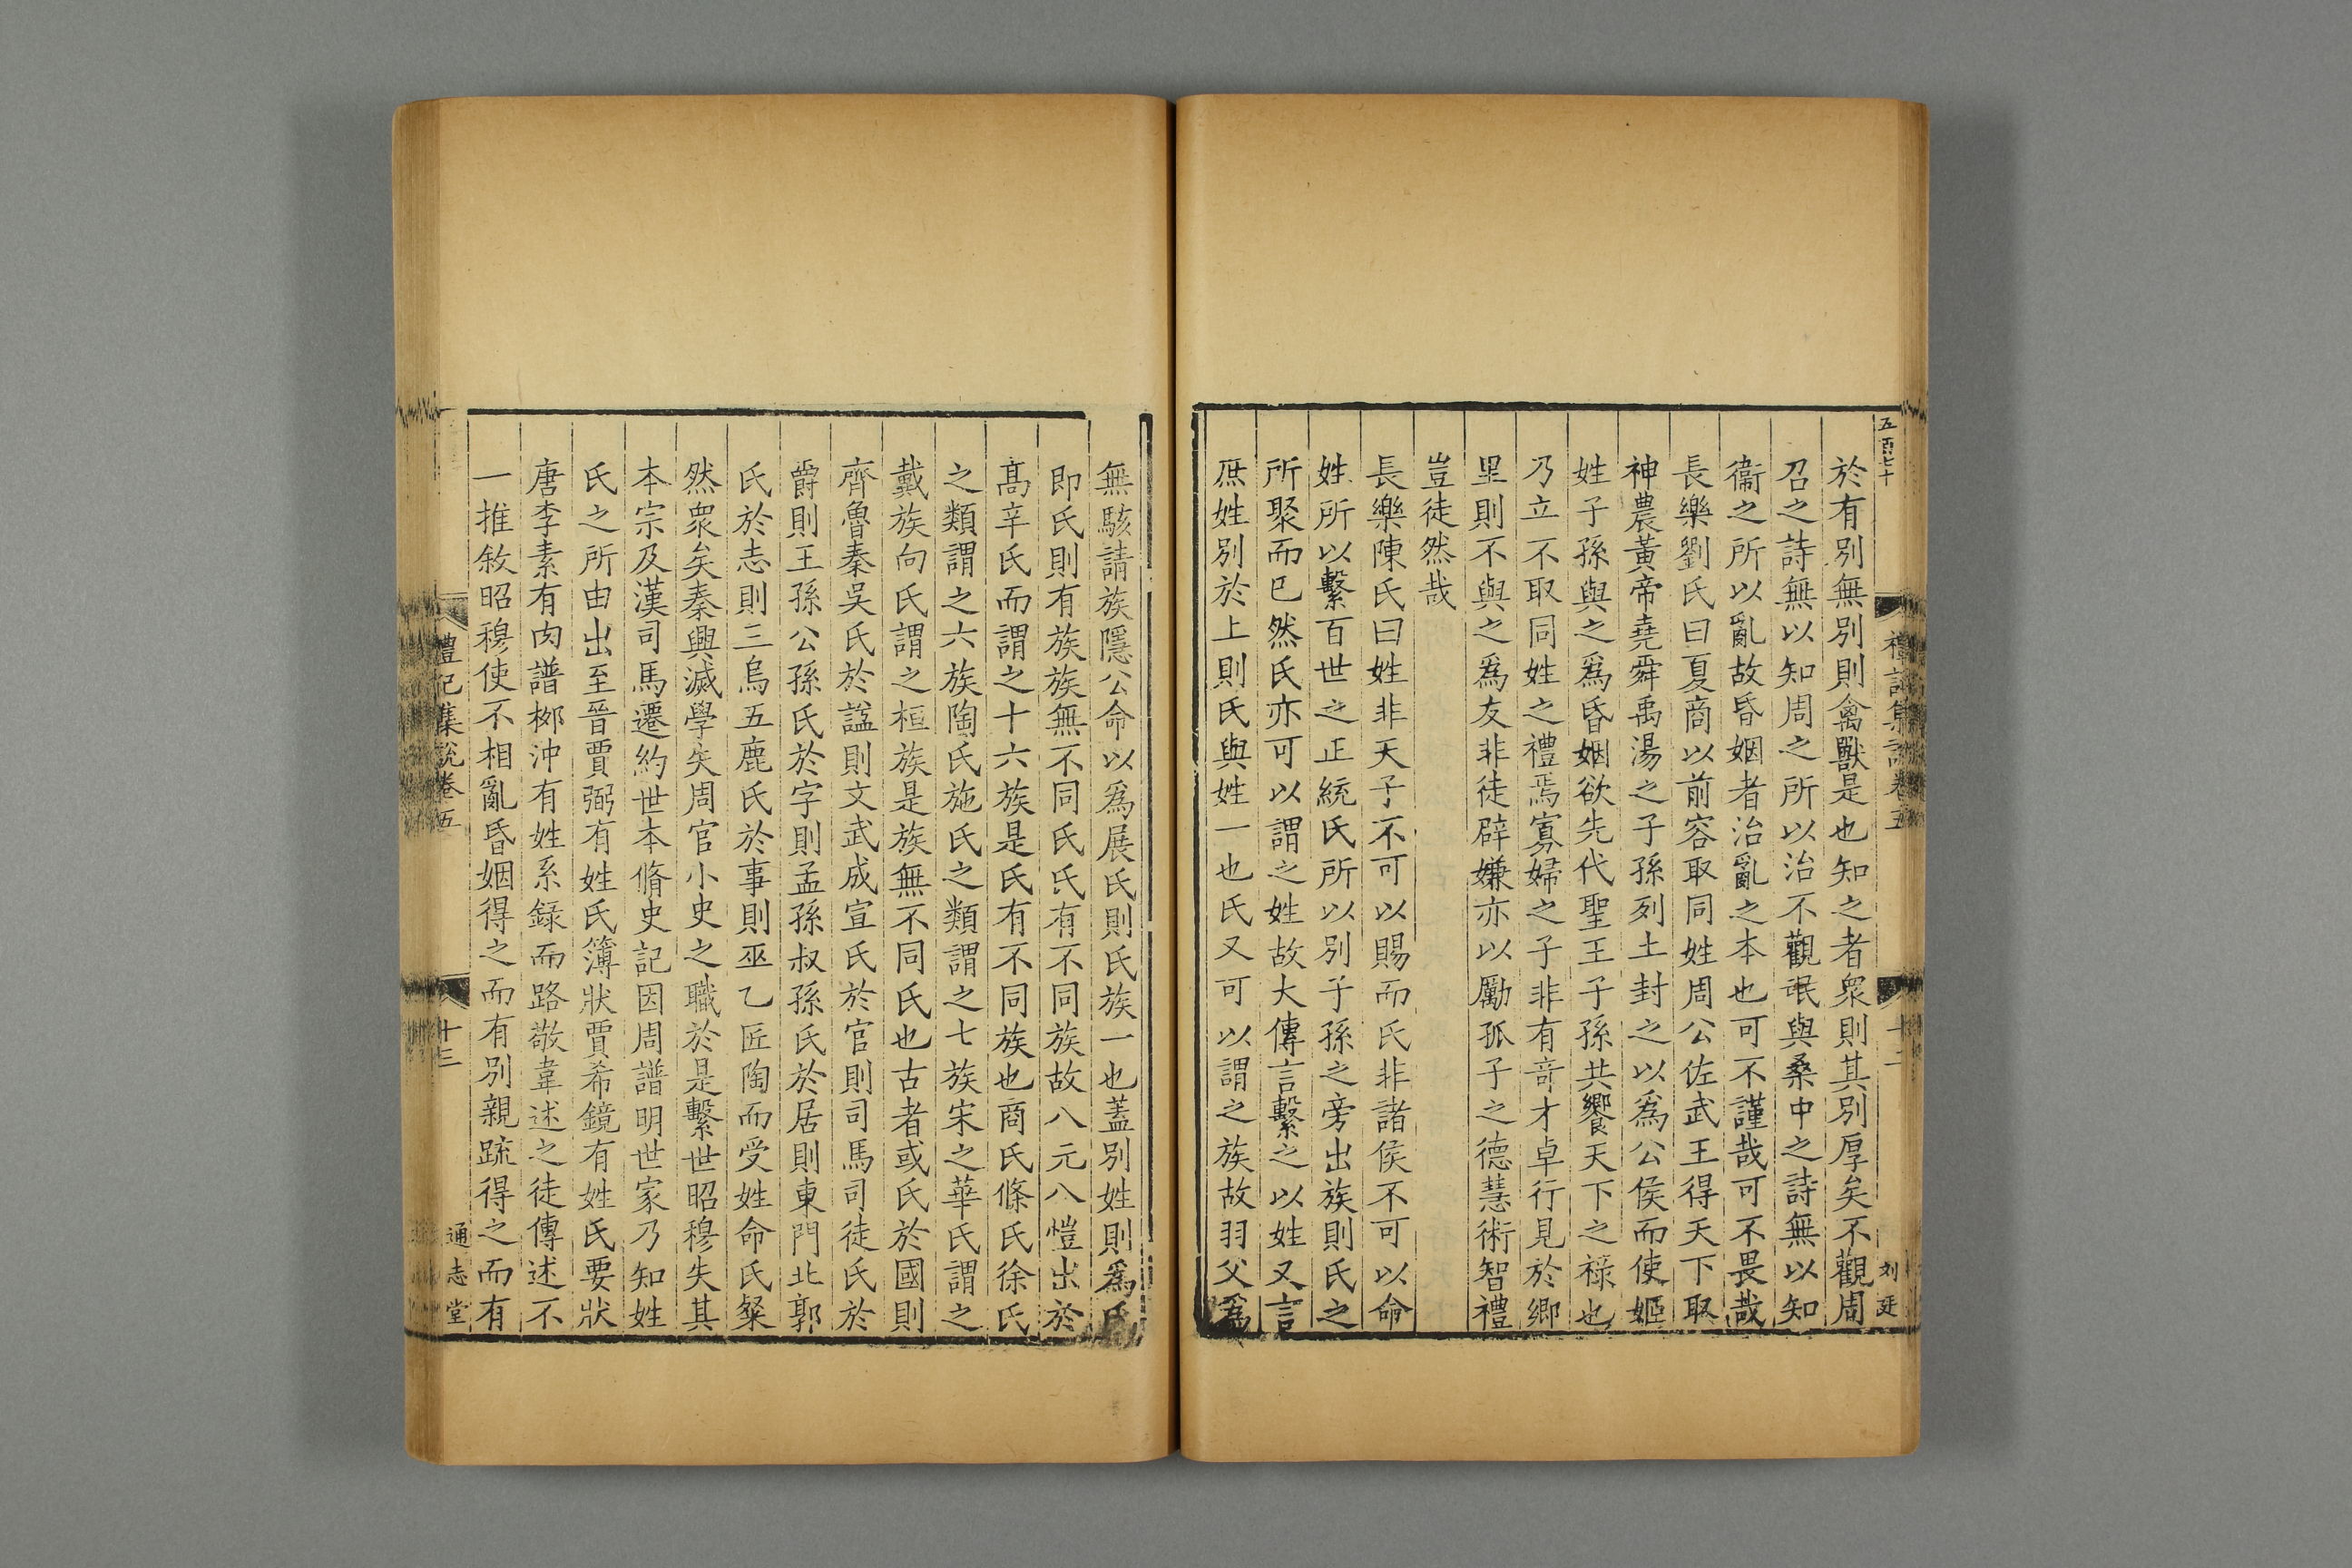 五百七十
禮記集說卷五
十二
刘廷
於有別無別則禽獸是也知之者衆則其別厚矣不觀周
召之詩無以知周之所以治不觀氓與桑中之詩無以知
衞之所以亂故昏姻者治亂之本也可不謹哉可不畏哉
長樂劉氏曰夏商以前容取同姓周公佐武王得天下取
神農黃帝堯舜禹湯之子孫列土封之以爲公侯而使姬
姓子孫與之爲昏姻欲先代聖王子孫共饗天下之祿也
乃立不取同姓之禮焉寡婦之子非有奇才卓行見於鄉
里則不與之爲友非徒辟嫌亦以勵孤子之德慧術智禮
豈徒然哉
長樂陳氏曰姓非天子不可以賜而氏非諸侯不可以命
姓所以繫百世之正統氏所以別子孫之旁出族則氏之
所聚而已然氏亦可以謂之姓故大傳言繫之以姓又言
庶姓別於上則氏與姓一也氏又可以謂之族故羽父爲
無駭請族隱公命以爲展氏則氏族一也蓋別姓則爲氏
即氏則有族族無不同氏氏有不同族故八元八愷出於
髙辛氏而謂之十六族是氏有不同族也商氏條氏徐氏
之類謂之六族陶氏施氏之類謂之七族宋之華氏謂之
戴族向氏謂之桓族是族無不同氏也古者或氏於國則
齊魯秦吳氏於諡則文武成宣氏於官則司馬司徒氏於
爵則王孫公孫氏於字則孟孫叔孫氏於居則東門北郭
氏於志則三烏五鹿氏於事則巫乙匠陶而受姓命氏粲
然衆矣秦興滅學失周官小史之職於是繫世昭穆失其
本宗及漢司馬遷約世本脩史記因周譜明世家乃知姓
氏之所由出至晉賈弼有姓氏簿狀賈希鏡有姓氏要狀
唐李素有肉譜栁沖有姓系録而路敬韋述之徒傳述不
一推敘昭穆使不相亂昏姻得之而有別親疏得之而有
禮記集說卷五
十三
通志堂